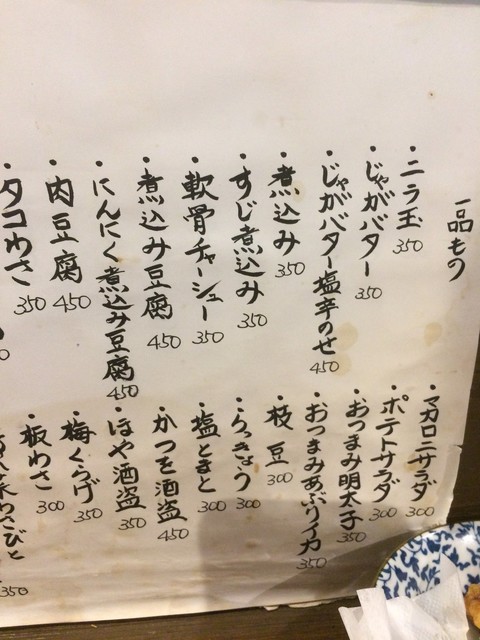 一品もの
・ニラ玉 350
・じゃがバター 350
・じゃがバター塩辛のせ 450
・煮込み 350
・すじ煮込み 350
・軟骨チャーシュー 350
・煮込み豆腐 450
・にんにく煮込み豆腐 450
・肉豆腐 450
・タコわさ 350
・マカロニサラダ 300
・ポテトサラダ 300
・おつまみ明太子 350
・おつまみあぶりイカ 350
・枝豆 300
・らっきょう 300
・塩とまと 300
・かつを酒盗 450
・ほや酒盗 350
・梅くらげ 350
・板わさ 300
350